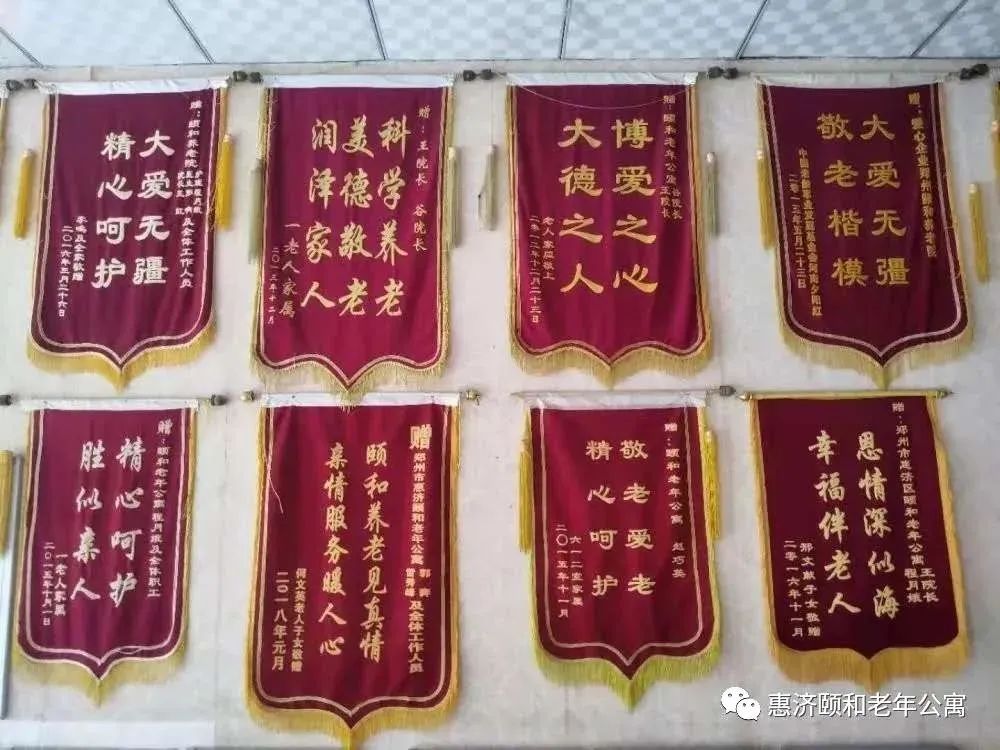 赠：颐和养老院
及全体工作人员
大爱无疆
精心呵护
李鸣及全家敬赠
二〇一六年三月二十六日
赠：王院长 谷院长
科学养老
美德敬老
润泽家人
一老人家属
二〇一五年十二月
赠：颐和老年公寓
谷院长
王院长
博爱之心
大德之人
老人家属敬上
二零一二年十二月二十三日
赠：爱心企业郑州颐和养老院
大爱无疆
敬老楷模
中国老龄事业发展基金会河南夕阳红
二零一三年五月二十三日
赠：颐和老年公寓 程月娥及全体职工
精心呵护
胜似亲人
一老人家属
二〇一五年十月一日
赠
郑州市惠济颐和老年公寓
及全体工作人员
颐和养老见真情
亲情服务暖人心
何文英老人子女敬赠
二〇一八年元月
赠：颐和老年公寓 赵巧英
敬老爱老
精心呵护
六一二室家属
二〇一五年十一月
赠：郑州市惠济区颐和老年公寓
王院长
程月娥
恩情深似海
幸福伴老人
郑文献子女敬赠
二零一六年十一月
惠济颐和老年公寓